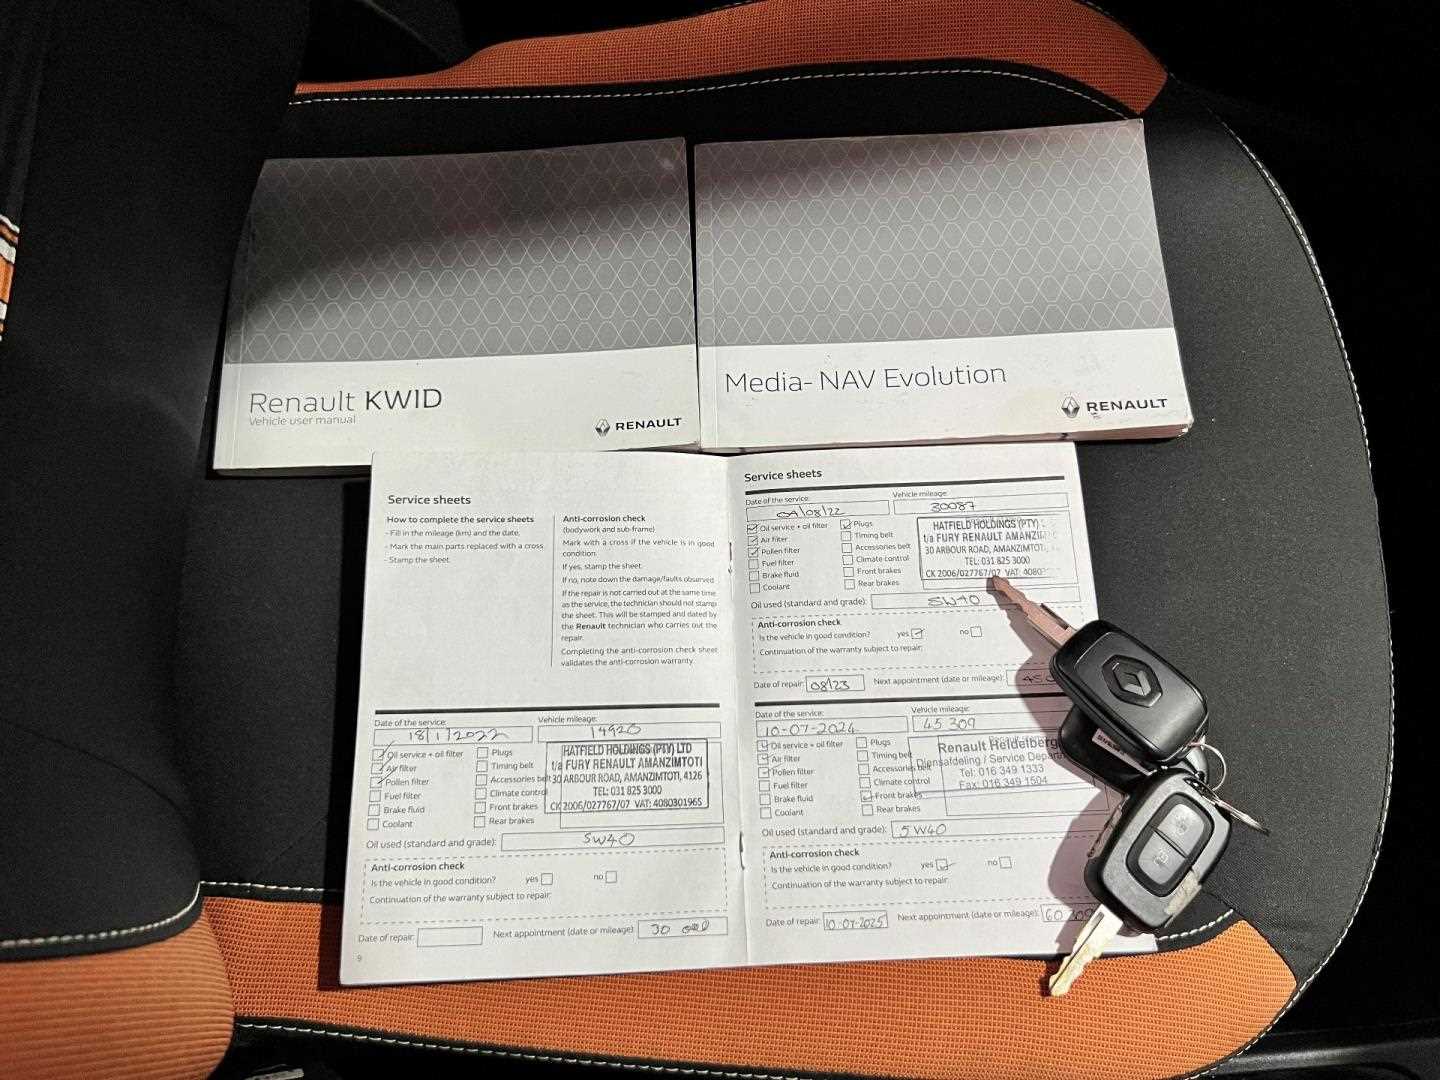 Renault KWID
Vehicle user manual
RENAULT
Media- NAV Evolution
RENAULT
Service sheets
How to complete the service sheets
- Fill in the mileage (km) and the date,
- Mark the main parts replaced with a cross.
- Stamp the sheet.
Anti-corrosion check
(bodywork and sub-frame)
Mark with a cross if the vehicle is in good
condition.
If yes, stamp the sheet.
If no, note down the damage/faults observed.
If the repair is not carried out at the same time
as the service, the technician should not stamp
the sheet. This will be stamped and dated by
the Renault technician who carries out the
repair.
Completing the anti-corrosion check sheet
validates the anti-corrosion warranty.
Date of the service:
18/1/2022
Vehicle mileage:
14920
Oil service + oil filter
Air filter
Pollen filter
Fuel filter
Brake fluid
Coolant
Plugs
Timing belt
Accessories belt
Climate control
Front brakes
Rear brakes
HATFIELD HOLDINGS (PTY) LTD
t/a FURY RENAULT AMANZIMTOTI
30 ARBOUR ROAD, AMANZIMTOTI, 4126
TEL: 031 825 3000
CK 2006/027767/07 VAT: 4080301965
Oil used (standard and grade): 5W40
Anti-corrosion check
Is the vehicle in good condition? yes no
Continuation of the warranty subject to repair:
Date of repair:
Next appointment (date or mileage): 30 000
9
Service sheets
Date of the service:
04/08/22
Vehicle mileage:
30087
Oil service + oil filter
Air filter
Pollen filter
Fuel filter
Brake fluid
Coolant
Plugs
Timing belt
Accessories belt
Climate control
Front brakes
Rear brakes
HATFIELD HOLDINGS (PTY)
t/a FURY RENAULT AMANZIM
30 ARBOUR ROAD, AMANZIMTOTI,
TEL: 031 825 3000
CK 2006/027767/07 VAT: 4080
Oil used (standard and grade): 5W40
Anti-corrosion check
Is the vehicle in good condition? yes no
Continuation of the warranty subject to repair:
Date of repair: 08/23
Next appointment (date or mileage): 450
Date of the service:
10-07-2024
Vehicle mileage:
45 309
Oil service + oil filter
Air filter
Pollen filter
Fuel filter
Brake fluid
Coolant
Plugs
Timing belt
Accessories
Climate control
Front brakes
Rear brakes
Renault Heidelberg
Diensafdeling / Service Depart
Tel: 016 349 1333
Fax: 016 349 1504
Oil used (standard and grade): 5W40
Anti-corrosion check
Is the vehicle in good condition? yes no
Continuation of the warranty subject to repair:
Date of repair: 10-07-2025
Next appointment (date or mileage): 60 309